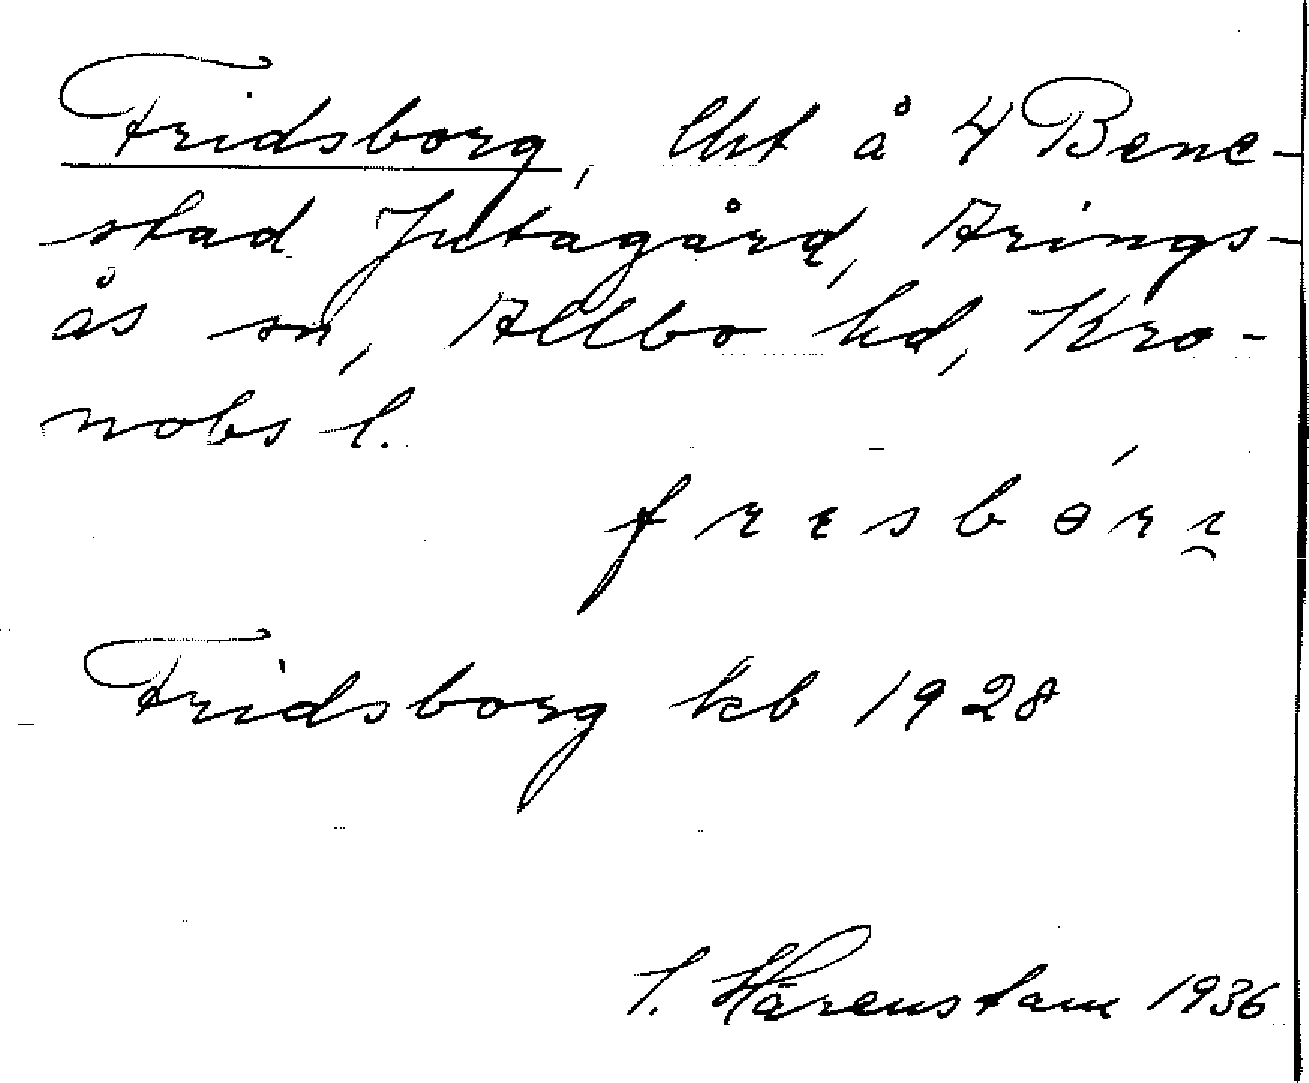 Fridsborg, lht å 4 Bene-
stad Jutagård, Arings-
ås sn, Allbo hd, Kro-
nobs l.
Fridsborg kb 1928
S. Härenstam 1936